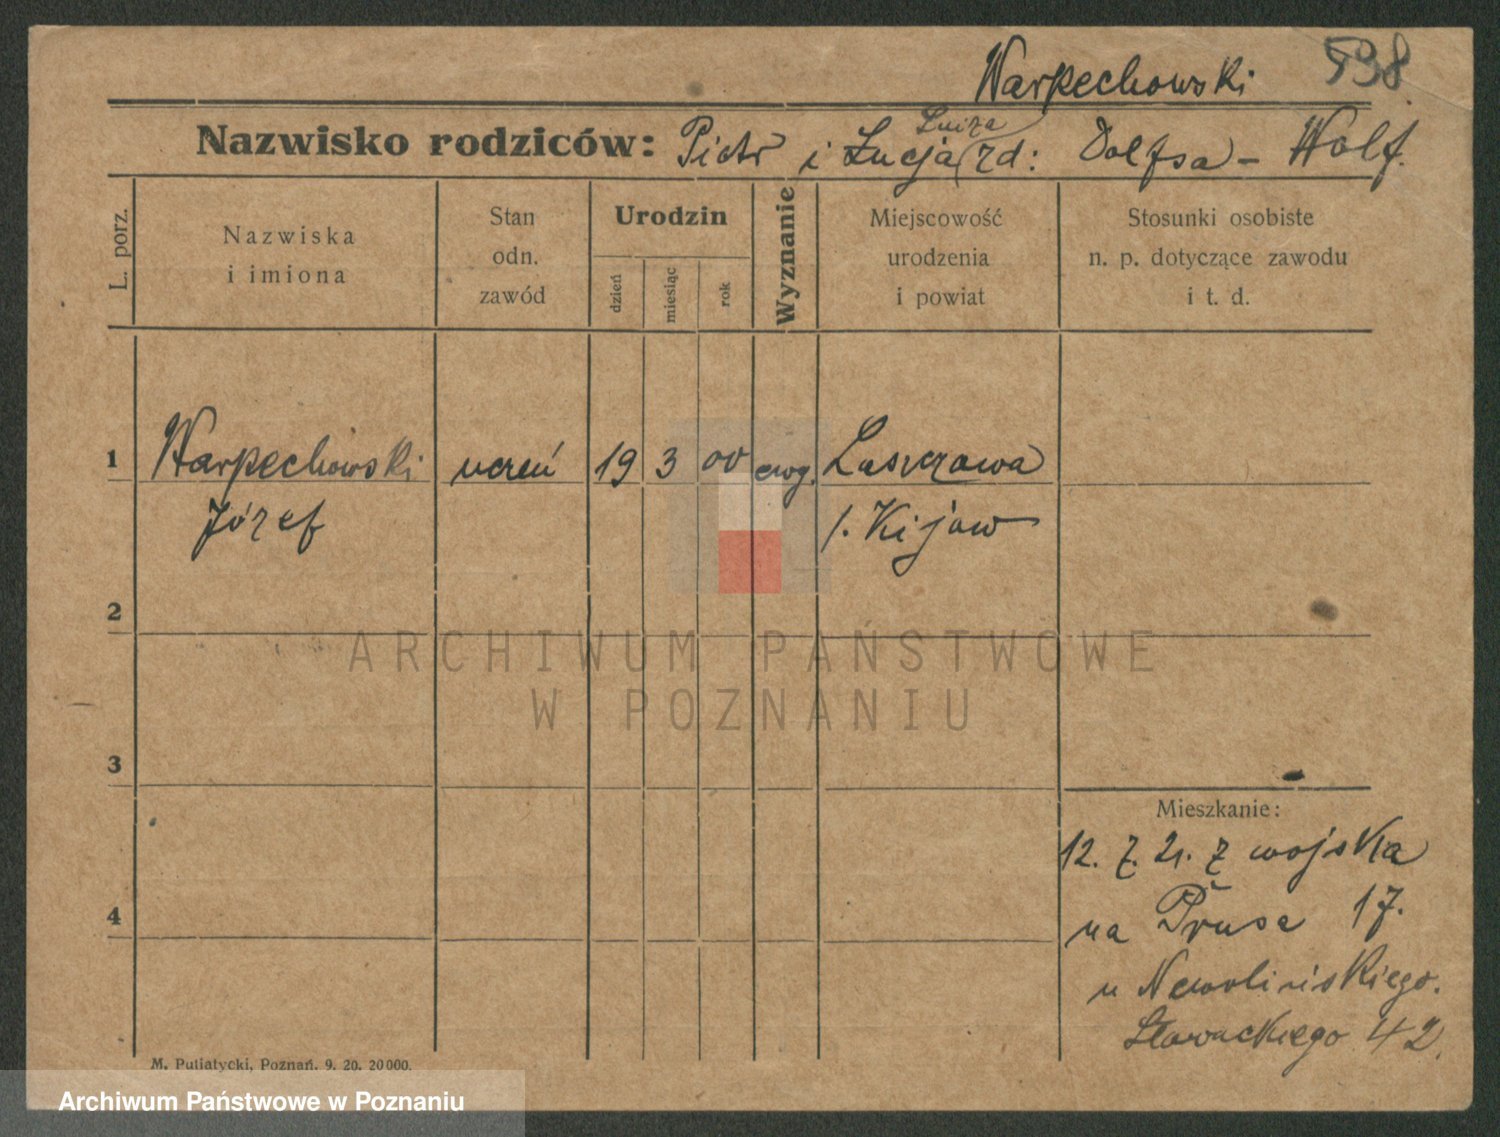 Warpechowski 598
Luiza
Nazwisko rodziców: Piotr i Łucja (zd: Dolfsa - Wolf.
L. porz.
Nazwiska i imiona
Stan odn. zawód
Urodzin
dzień miesiąc rok
Wyznanie
Miejscowość urodzenia i powiat
Stosunki osobiste n. p. dotyczące zawodu i t. d.
1 Warpechowski uczeń 19 3 00 ewg. Laszczowa
Józef /. Kijow
2
ARCHIWUM PAŃSTWOWE
W POZNANIU
3
Mieszkanie:
12. 7. 21. z wojska
4 na Prusa 17.
u Newolińskiego.
Słowackiego 42.
M. Putiatycki, Poznań. 9. 20. 20000.
Archiwum Państwowe w Poznaniu